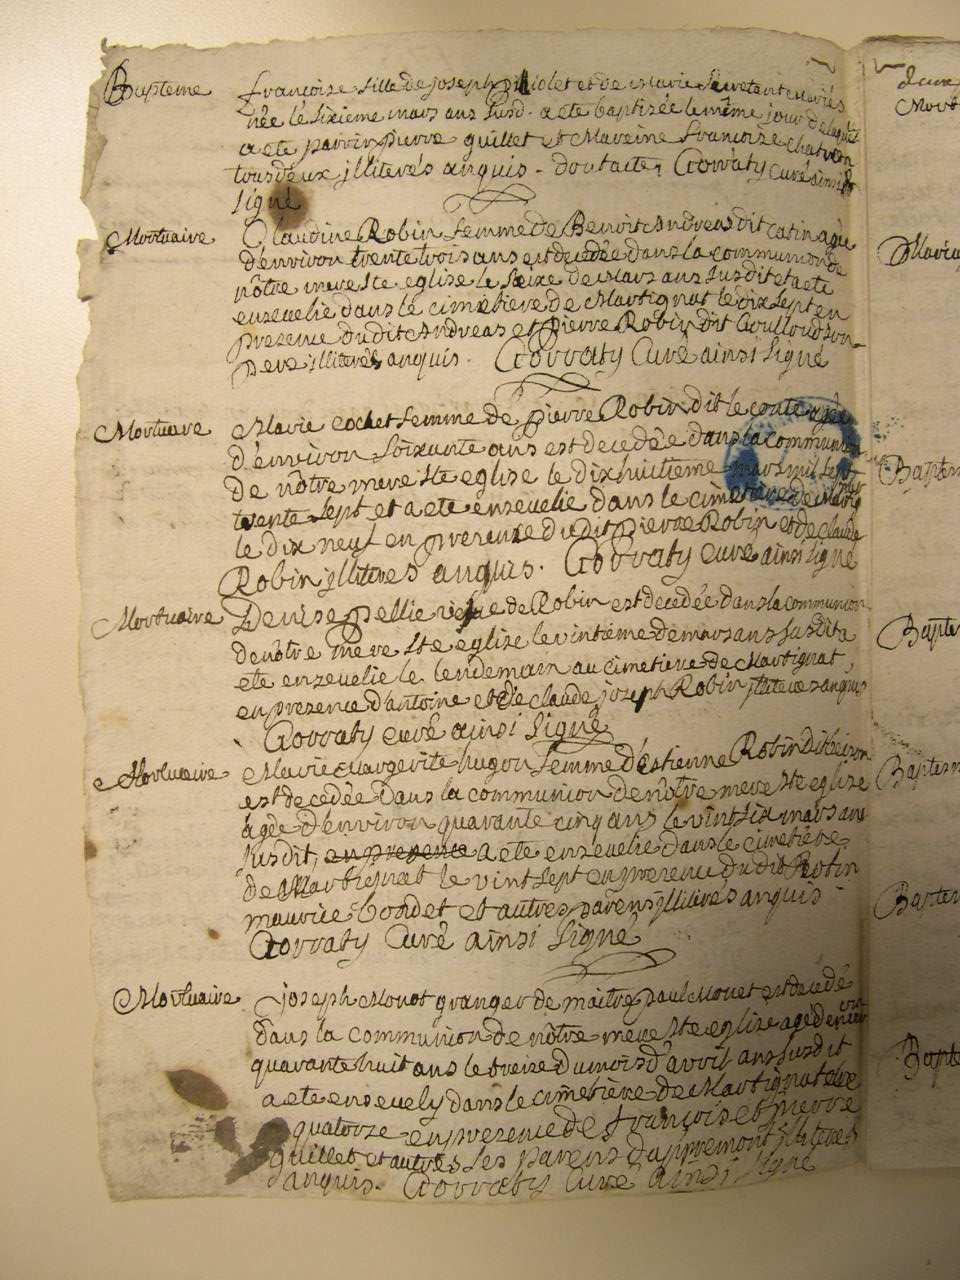 Bapteme
françoise fille de joseph et de Marie mariés
née le sixieme mars ans susd. a eté baptizée le même jour
a eté parrin pierre guillet et Mareine françoise
tous deux jlliterés anquis. dont acte, Gorraty curé ainsi
signé
Mortuaire
Claudine Robin femme de Benoit Andreas dit catin agée
d'environ trente trois ans est decedée dans la communion de
nôtre mere ste eglise le seize de mars ans susdit et a eté
ensevelie dans le cimetiere de Martignat le dix sept en
presence du dit Andreas et pierre Robin dit Goulloud son
pere jlliterés anquis. Gorraty Curé ainsi signé
Mortuere
Marie cochet femme de pierre Robin dit le conte agée
d'environ soixante ans est decedée dans la communion
de nôtre mere ste eglise le dixhuitieme mars mil sept
trente sept et a eté ensevelie dans le cimetiere de
le dix neuf en presence du dit pierre Robin et de claude
Robin jlliteres anquis. Gorraty curé ainsi signé
Mortuaire
Denise pellie de Robin est decedée dans la communion
de nôtre mere ste eglise le vintieme de mars ans susdit a
eté ensevelie le lendemain au cimetiere de Martignat,
en presence d'antoine et de claude joseph Robin jlliteres anquis
Gorraty curé ainsi signé
Mortuaire
Marie Margerite hugon femme d'estienne Robin dit
est decedée dans la communion de nôtre mere ste eglise
agée d'environ quarante cinq ans le vint six mars ans
susdit, en presence a eté ensevelie dans le cimetiere
de Martignat le vint sept en presence du dit Robin
maurice bondet et autres parens jlliterés anquis
Gorraty Curé ainsi signé
Mortuaire
joseph Monot granger de maitre paul Monet est decedé
dans la communion de nôtre mere ste eglise agé d'environ
quarante huit ans le treize du mois d'avril ans susdit
a eté ensevely dans le cimetiere de Martignat le
quatorze en presence de françois et pierre
guillet et autres ses parens d'appremont jlliterés
anquis. Gorraty Curé ainsi signé